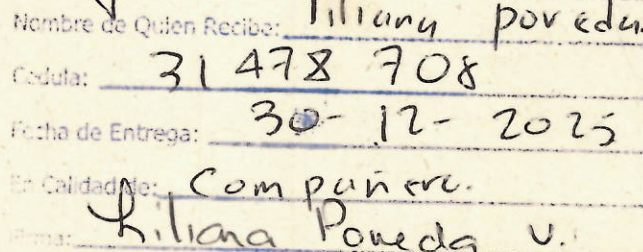 Nombre de Quien Recibe: liliana poveda
Cedula: 31 478 708
Fecha de Entrega: 30- 12- 2025
En Calidad de: Compañera.
Firma: Liliana Poveda V.